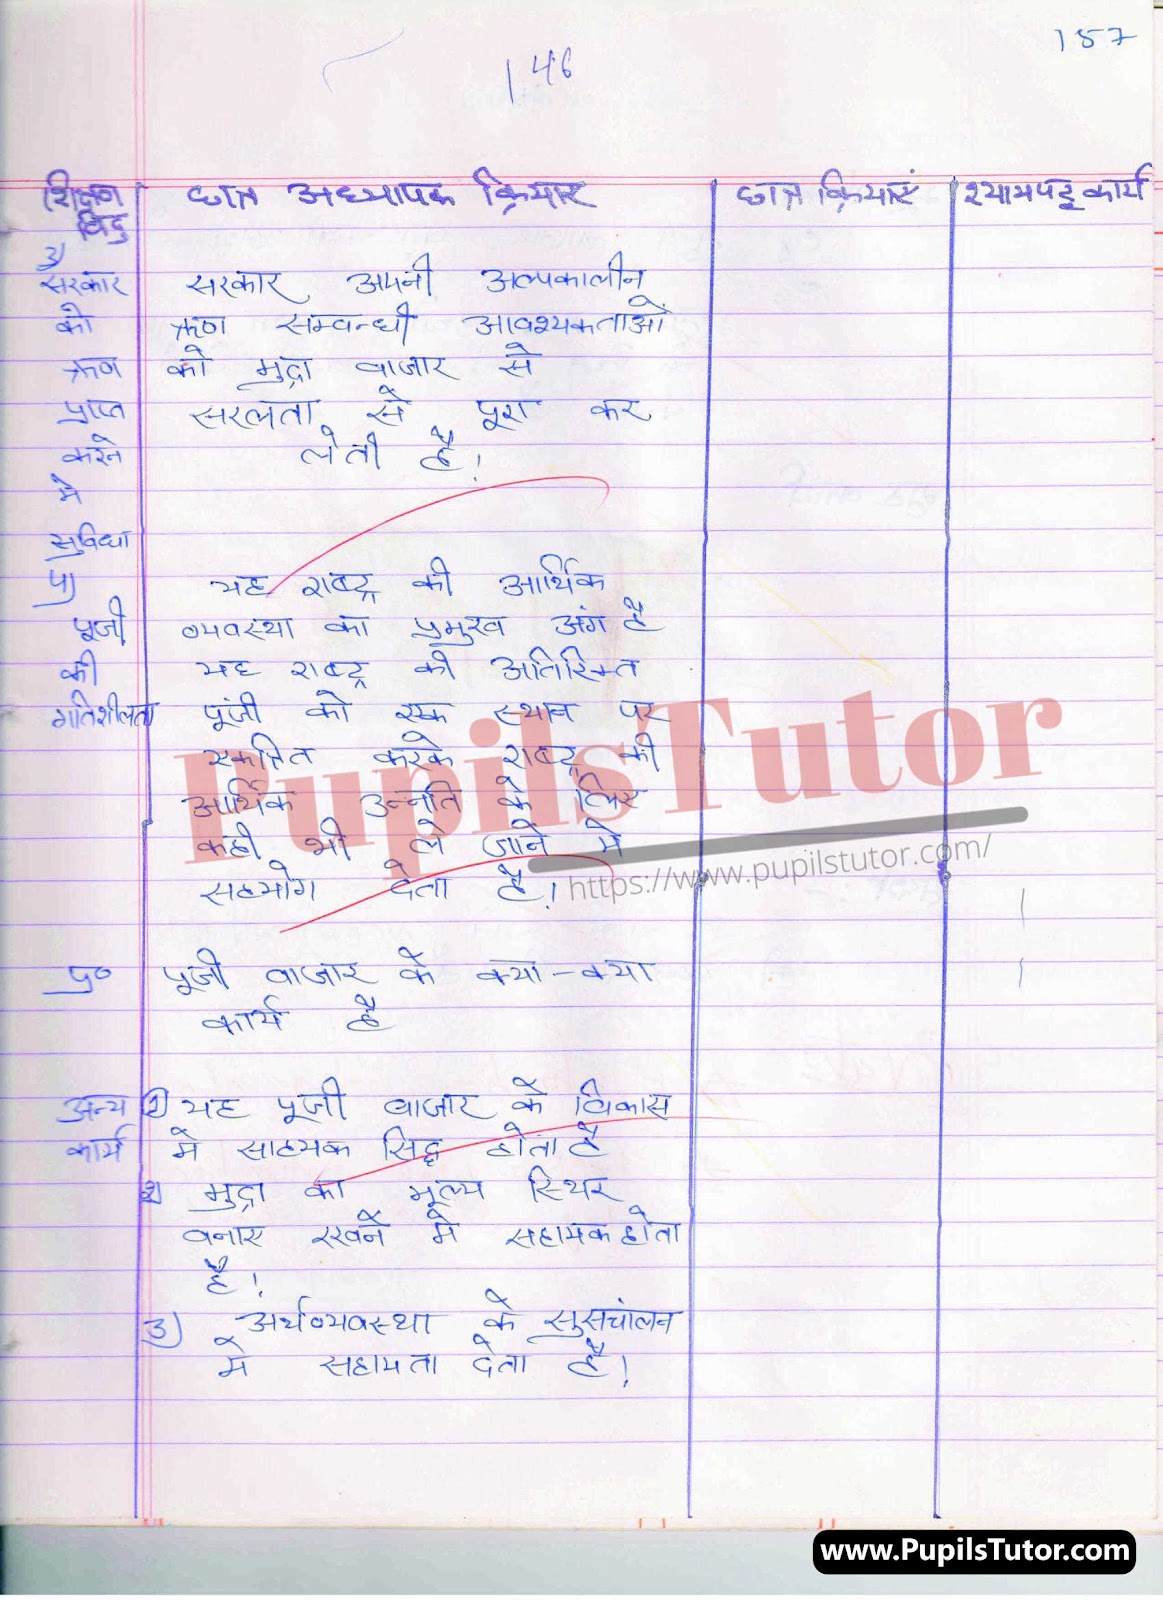 157
146
शिक्षण बिंदु
छात्र अध्यापक क्रियाएं
छात्र क्रियाएं
श्यामपट्ट कार्य
3)
सरकार को ऋण प्राप्त करने मे सुविधा
सरकार अपनी अल्पकालीन
ऋण सम्बन्धी आवश्यकताओं
को मुद्रा बाजार से
सरलता से पूरा कर
लेती है।
पूजी की गतिशीलता
यह राष्ट्र की आर्थिक
व्यवस्था का प्रमुख अंग है
यह राष्ट्र की अतिरिक्त
पूंजी को एक स्थान पर
एकत्रित करके राष्ट्र की
आर्थिक उन्नति के लिए
कही भी ले जाने मे
सहयोग देता है।
PupilsTutor
https://www.pupilstutor.com/
प्र० पूजी बाजार के क्या-क्या
कार्य है
अन्य कार्य
1) यह पूजी बाजार के विकास
मे साहयक सिद्ध होता है
2) मुद्रा का मूल्य स्थिर
बनाए रखने मे सहायक होता
है।
3) अर्थव्यवस्था के सुसचांलन
मे सहायता देता है।
www.PupilsTutor.com